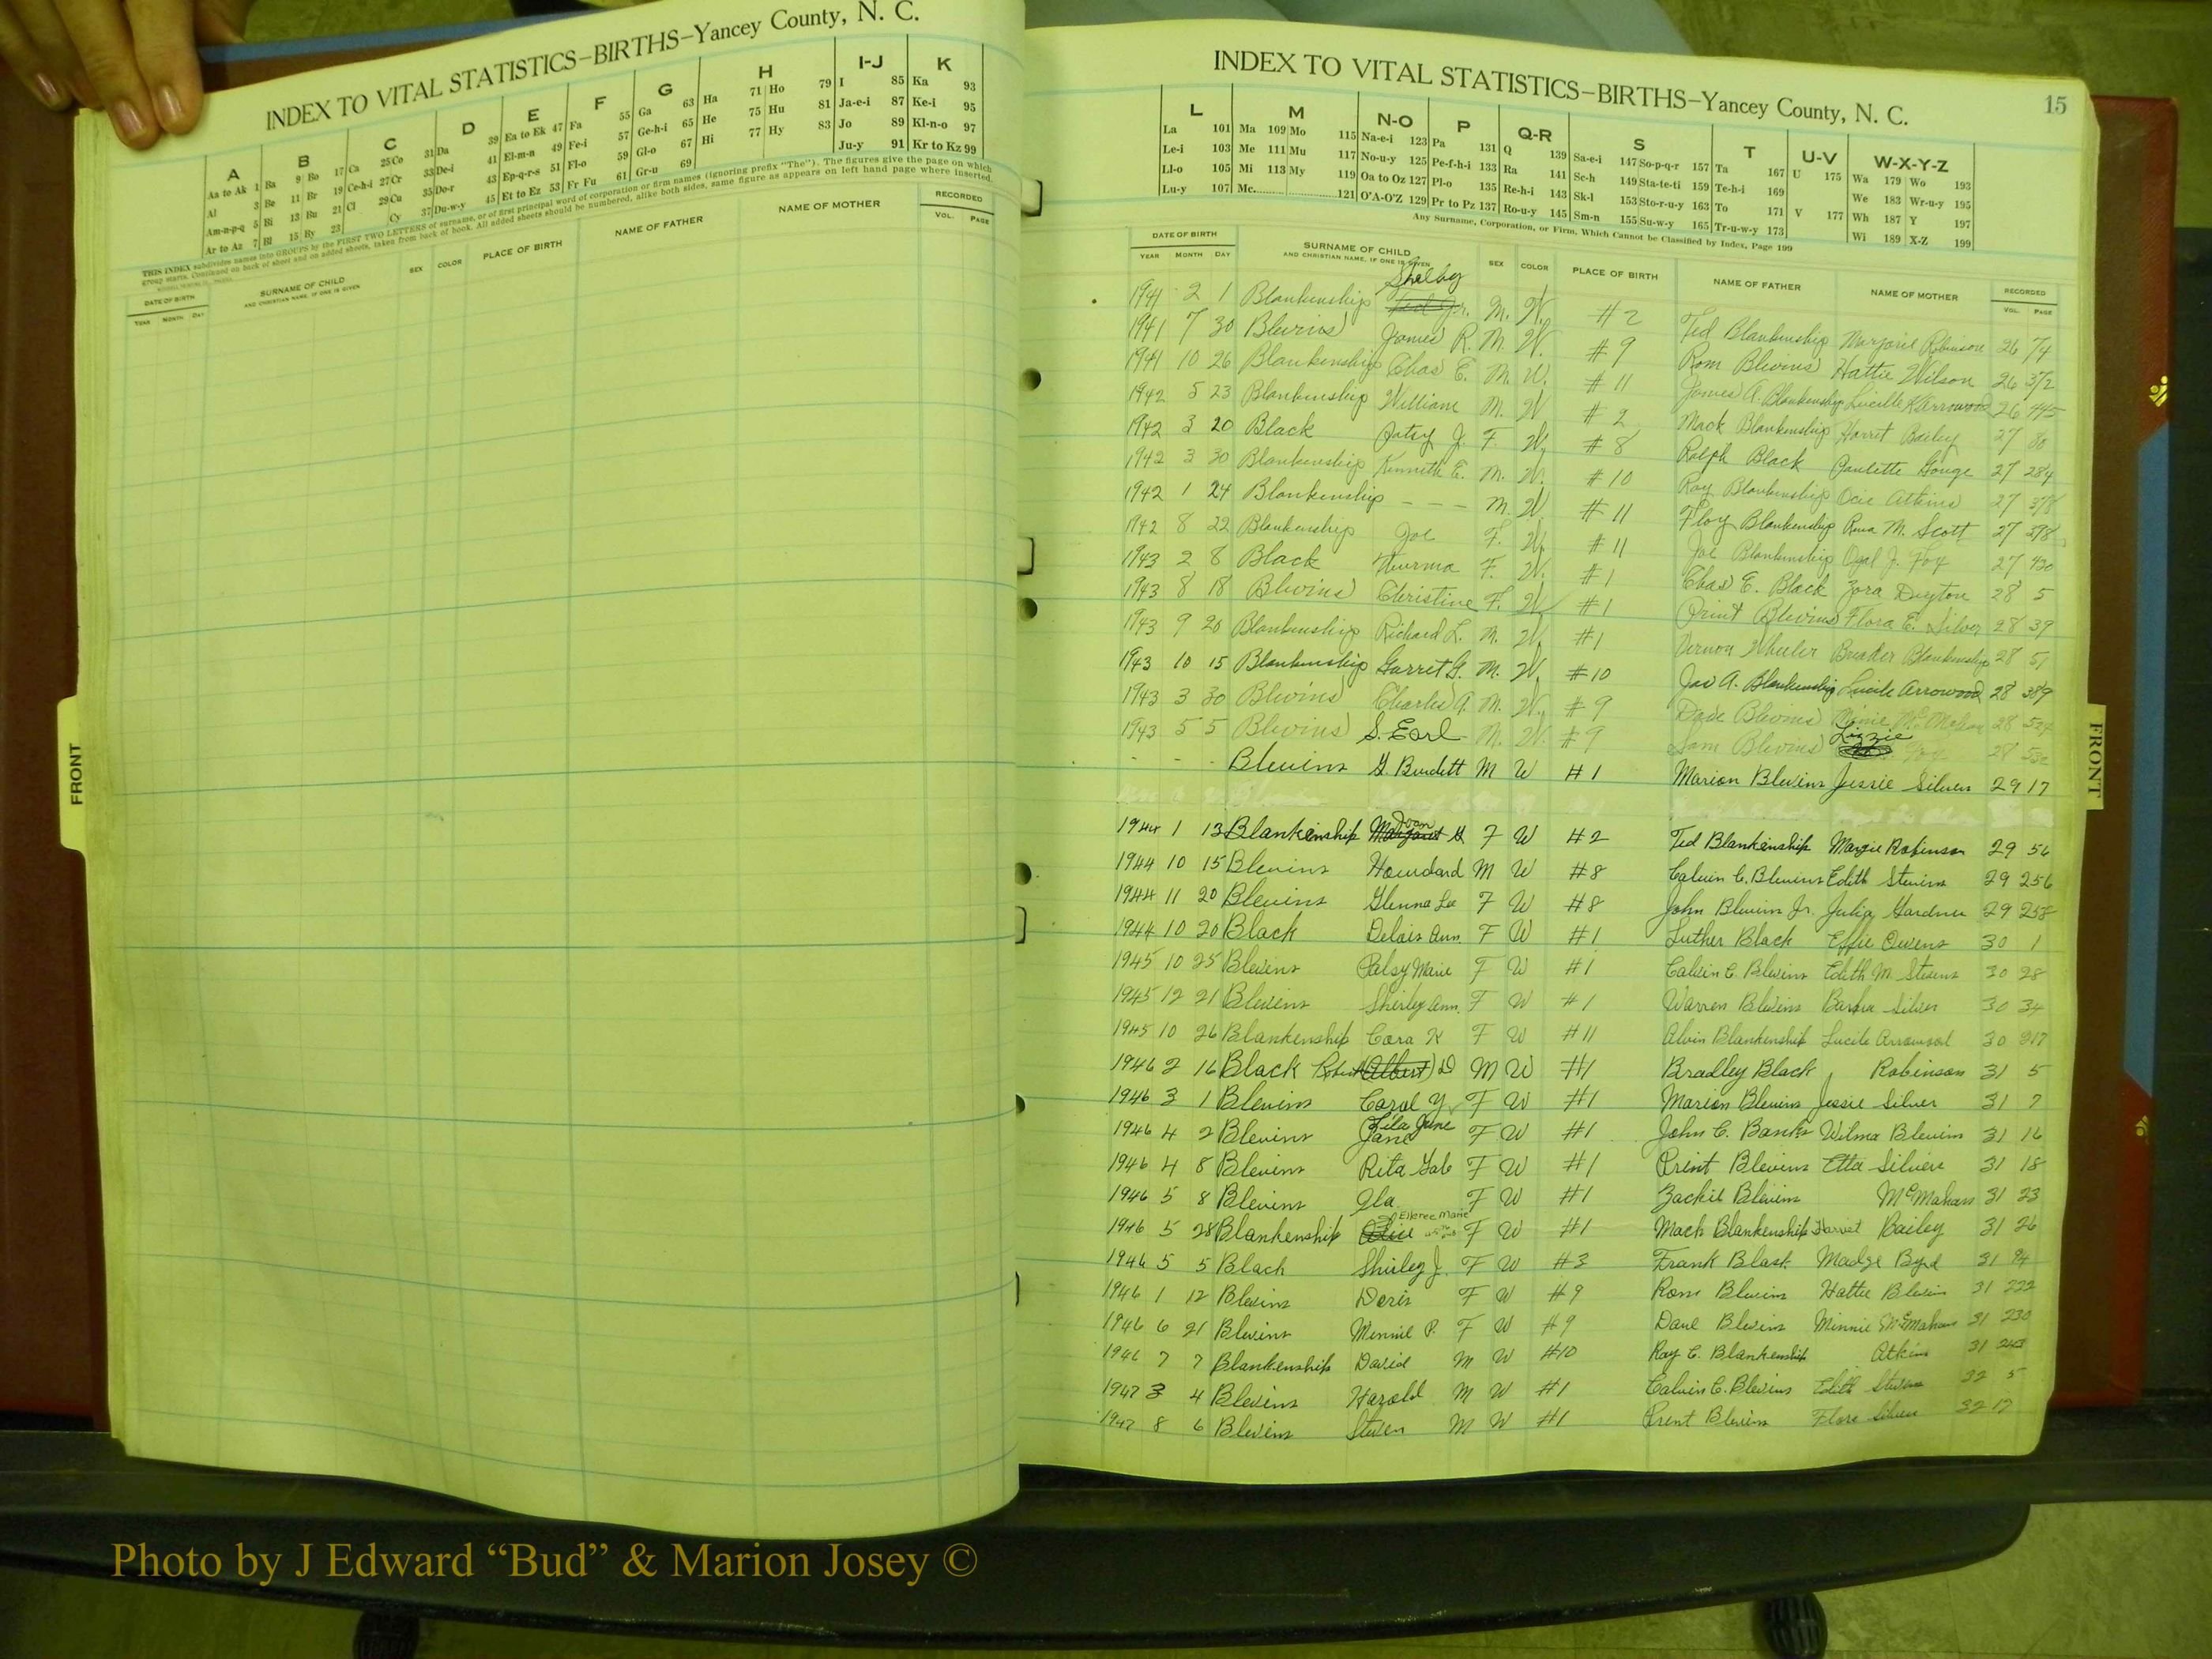 INDEX TO VITAL STATISTICS—BIRTHS—Yancey County, N. C.
A B C D E F G H I-J K
Aa to Ak 1 Ba 9 Bo 17 Ca 25 Co 31 Da 39 Ea to Ek 47 Fa 55 Ga 63 Ha 71 Ho 79 I 85 Ka 93
Al 3 Be 11 Br 19 Ce-h-i 27 Cr 33 De-i 41 El-m-n 49 Fe-i 57 Ge-h-i 65 He 75 Hu 81 Ja-e-i 87 Ke-i 95
Am-n-p-q 5 Bi 13 Bu 21 Cl 29 Cu 35 Do-r 43 Ep-q-r-s 51 Fl-o 59 Gl-o 67 Hi 77 Hy 83 Jo 89 Kl-n-o 97
Ar to Az 7 Bl 15 By 23 Cy 37 Du-w-y 45 Et to Ez 53 Fr Fu 61 Gr-u 69 Ju-y 91 Kr to Kz 99
THIS INDEX subdivides names into GROUPS by the FIRST TWO LETTERS of surname, or of first principal word of corporation or firm names (ignoring prefix "The"). The figures give the page on which
group starts. Continued on back of sheet and on added sheets, taken from back of book. All added sheets should be numbered, alike both sides, same figure as appears on left hand page where inserted.
DATE OF BIRTH SURNAME OF CHILD SEX COLOR PLACE OF BIRTH NAME OF FATHER NAME OF MOTHER RECORDED
YEAR MONTH DAY AND CHRISTIAN NAME, IF ONE IS GIVEN VOL. PAGE
FRONT
INDEX TO VITAL STATISTICS—BIRTHS—Yancey County, N. C.
15
L M N-O P Q-R S T U-V W-X-Y-Z
La 101 Ma 109 Mo 115 Na-e-i 123 Pa 131 Q 139 Sa-e-i 147 So-p-q-r 157 Ta 167 U 175 Wa 179 Wo 193
Le-i 103 Me 111 Mu 117 No-u-y 125 Pe-f-h-i 133 Ra 141 Sc-h 149 Sta-te-ti 159 Te-h-i 169 We 183 Wr-u-y 195
Ll-o 105 Mi 113 My 119 Oa to Oz 127 Pl-o 135 Re-h-i 143 Sk-l 153 Sto-r-u-y 163 To 171 V 177 Wh 187 Y 197
Lu-y 107 Mc 121 O'A-O'Z 129 Pr to Pz 137 Ro-u-y 145 Sm-n 155 Su-w-y 165 Tr-u-w-y 173 Wi 189 X-Z 199
Any Surname, Corporation, or Firm, Which Cannot be Classified by Index, Page 199
DATE OF BIRTH SURNAME OF CHILD SEX COLOR PLACE OF BIRTH NAME OF FATHER NAME OF MOTHER RECORDED
YEAR MONTH DAY AND CHRISTIAN NAME, IF ONE IS GIVEN VOL. PAGE
Shelby
1941 2 1 Blankenship Ted Jr. M. W. #2 Ted Blankenship Marjorie Robinson 26 74
1941 7 30 Blevins James R. M. W. #9 Rom Blevins Hattie Wilson 26 372
1941 10 26 Blankenship Chas E. M. W. #11 James A. Blankenship Lucille Arrowood 26 445
1942 5 23 Blankenship William M. W #2 Mack Blankenship Harret Bailey 27
1942 3 20 Black Patsy J. F. W. #8 Ralph Black Paulette Gouge 27 284
1942 3 30 Blankenship Kenneth E. M. W. #10 Ray Blankenship Ocie Atkins 27 378
1942 1 24 Blankenship - - - M. W. #11 Floy Blankenship Rena M. Scott 27 378
1942 8 22 Blankenship Joe F. W. #11 Joe Blankenship Opal J. Fox 27 420
1943 2 8 Black F. W. #1 Chas E. Black Zora Deyton 28 5
1943 8 18 Blevins Christine F. W #1 Print Blevins Flora E. Silver 28 39
1943 9 20 Blankenship Richard L. M. W. #1 Vernon Wheeler Blankenship 28 51
1943 10 15 Blankenship Garret G. M. W. #10 Jas A. Blankenship Lucile Arrowood 28 389
1943 3 30 Blevins Charles A. M. W. #9 Dave Blevins Minnie McMahan 28
1943 5 5 Blevins S. Earl M. W. #9 Sam Blevins Lizzie 28
- - - Blevins G. Burdett M W #1 Marion Blevins Jessie Silvers 29 17
1944 1 13 Blankenship Margaret Joan G F W #2 Ted Blankenship Margie Robinson 29 56
1944 10 15 Blevins Howdard M W #8 Calvin C. Blevins Edith Stevens 29 256
1944 11 20 Blevins Glenna Lee F W #8 John Blevins Jr. Julia Gardner 29 258
1944 10 20 Black Delois Ann F W #1 Luther Black Effie Owens 30 1
1945 10 25 Blevins Patsy Marie F W #1 Calvin C. Blevins Edith M. Stevens 30 28
1945 12 21 Blevins Shirley Ann F W #1 Warren Blevins Silver 30 34
1945 10 26 Blankenship Cora K F W #11 Alvin Blankenship Lucile Arrowood 30 317
1946 2 16 Black Robert (Albert) D M W #1 Bradley Black Robinson 31 5
1946 3 1 Blevins Carol Y F W #1 Marion Blevins Jessie Silver 31 7
1946 4 2 Blevins Jane Lila June F W #1 John C. Banks Wilma Blevins 31 16
1946 4 8 Blevins Rita Gale F W #1 Print Blevins Etta Silvers 31 18
1946 5 8 Blevins Ila F W #1 Zackie Blevins McMahan 31 23
1946 5 28 Blankenship Alice Ellenee Marie F W #1 Mack Blankenship Harret Bailey 31 26
1946 5 5 Black Shirley J. F W #3 Frank Black Madge Byrd 31 94
1946 1 12 Blevins Doris F W #9 Rom Blevins Hattie Blevins 31 222
1946 6 21 Blevins Minnie P. F W #9 Dave Blevins Minnie McMahan 31 230
1946 7 7 Blankenship David M W #10 Ray C. Blankenship Atkins 31
1947 3 4 Blevins Harold M W #1 Calvin C. Blevins Edith Stevens 32 5
1947 8 6 Blevins Steven M W #1 Prent Blevins Flora Silver 32 17
FRONT
Photo by J Edward “Bud” & Marion Josey ©